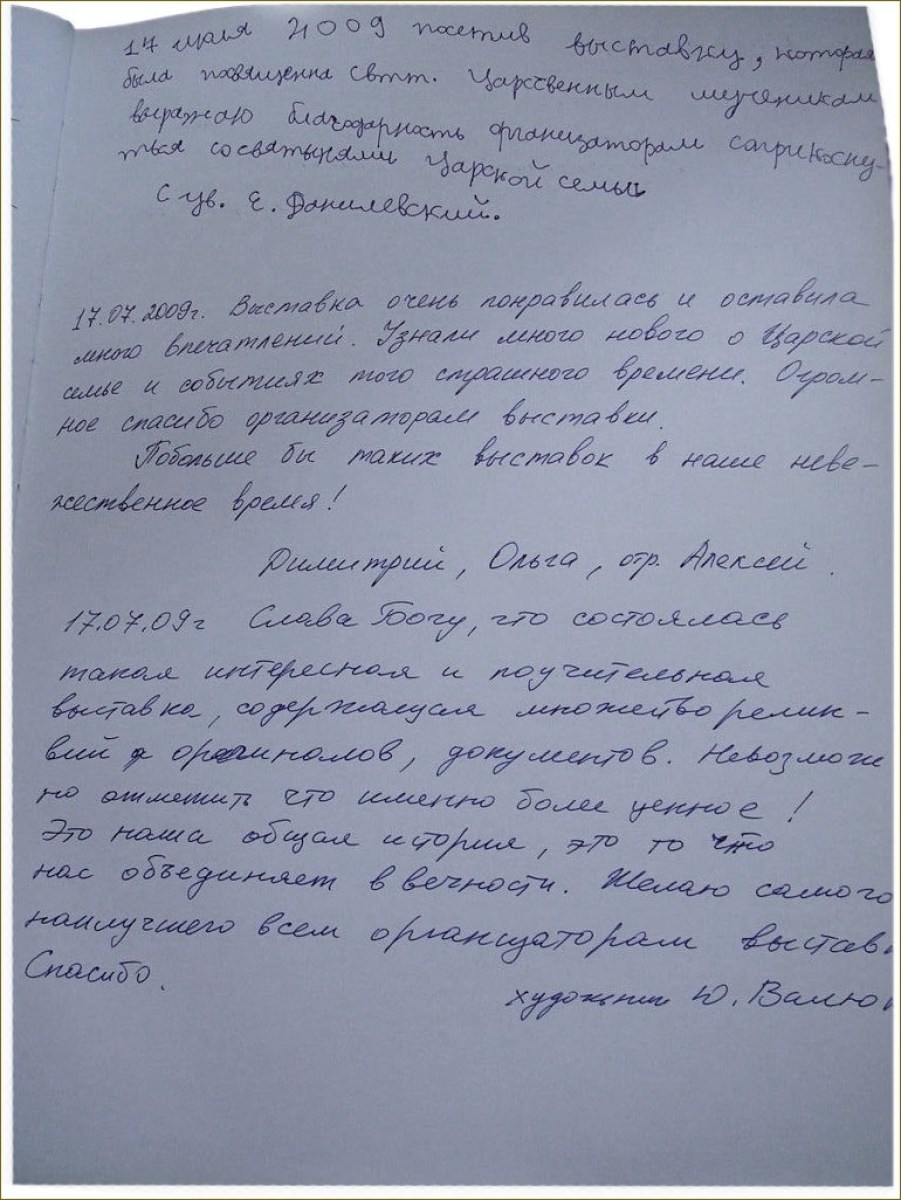 17 июля 2009 посетив выставку, которая
была посвященна Свтт. Царственным мученикам
выражаю благодарность организаторам соприкосну-
ться со святынями Царской семьи
С ув. Е. Данилевский.
17.07.2009г. Выставка очень понравилась и оставила
много впечатлений. Узнали много нового о Царской
семье и событиях того страшного времени. Огром-
ное спасибо организаторам выставки.
Побольше бы таких выставок в наше неве-
жественное время!
Димитрий, Ольга, отр. Алексей.
17.07.09г Слава Богу, что состоялась
такая интересная и поучительная
выставка, содержащая множество релик-
вий, документов. Невозмож
но отметить что именно более ценное!
Это наша общая история, это то что
нас объединяет в вечности. Желаю самого
наилучшего всем организаторам выстав
Спасибо.
художник Ю. Валю